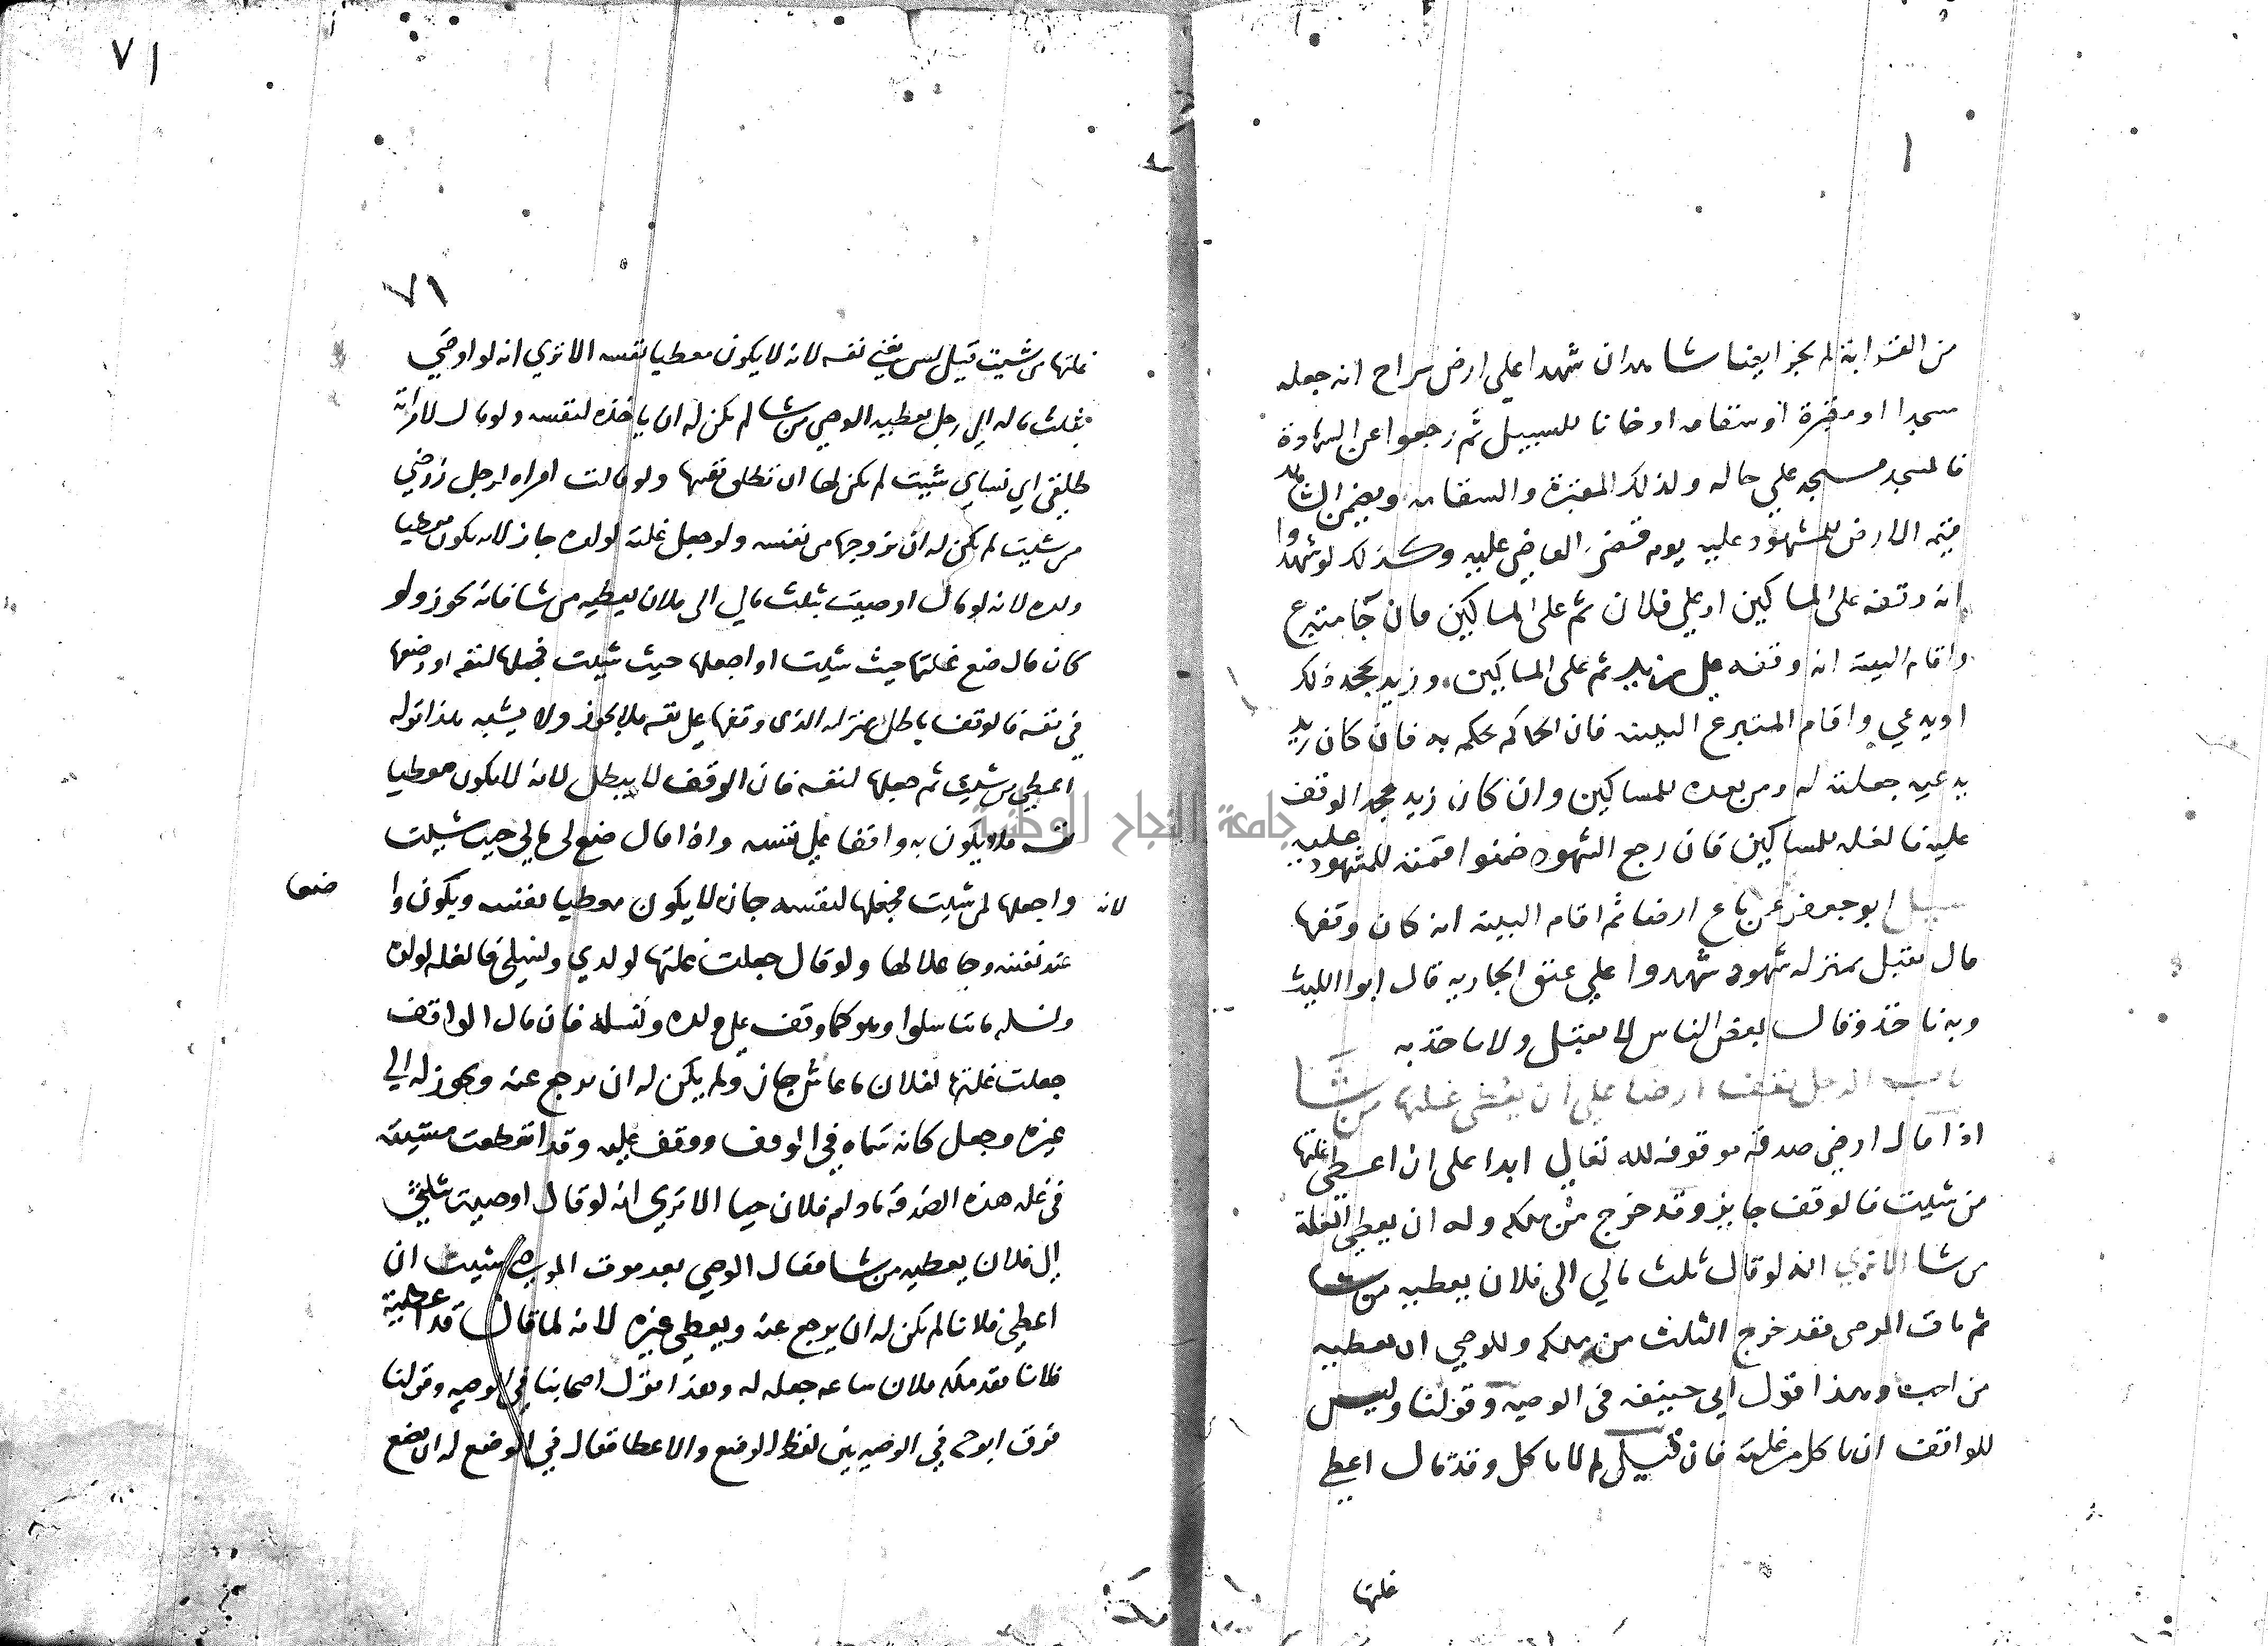 من القرابة لم يجز ايضا شاهدان شهدا علي ارض براح انه جعله
مسجدا او مقبرة او سقايه او خانا للسبيل ثم رجعوا عن الشهادة
فالمسجد مسجد علي حاله وكذلك المقبرة والسقايه ويضمن الشاهد
قيمه الارض للمشهود عليه يوم قضي القاضي عليه وكذلك لو شهدوا
انه وقفه على المساكين او علي فلان ثم على المساكين فان جا متبرع
واقام البينة انه وقفه علي زيد ثم على المساكين وزيد يجحد ذلك
او يدعي واقام المتبرع البينه فان الحاكم يحكم به فان كان زيد
يدعيه جعلته له ومن بعده للمساكين وان كان زيد يجحد الوقف
عليه فالغله للمساكين فان رجع الشهود ضمنوا قيمته للمشهود عليه
سيل ابو جعفر عمن باع ارضا ثم اقام البينه انه كان وقفها
قال يقبل بمنزله شهود شهدوا علي عتق الجاريه قال ابوا الليث
وبه ناخذ وقال بعض الناس لا يقبل ولا ناخذ به
باب الرجل يقف ارضا علي ان يعطي غلتها من شا
اذا قال ارضي صدقه موقوفه لله تعالي ابدا على ان اعطي غلتها
من شيت فالوقف جايز وقد خرج من ملكه وله ان يعطي الغلة
من شا الا تري انه لو قال ثلث مالي الى فلان يعطيه من شا
ثم مات الموصى فقد خرج الثلث من ملكه وللوصي ان يعطيه
من احب وهذا قول ابي حنيفه في الوصيه وقولنا وليس
للواقف ان ياكل من غلته فان قيل لم لا ياكل وقد قال اعطي
غلتها
٧١
٧١
غلتها من شيت قيل ليس يعني نفسه لانه لا يكون معطيا نفسه الا تري انه لو اوصي
بثلث ماله الي رجل يعطيه الوصي من شا لم يكن له ان ياخذه لنفسه ولو قال لامراته
طلقي اي نساي شيت لم يكن لها ان تطلق نفسها ولو قالت امراه لرجل زوجني
من شيت لم يكن له ان يزوجها من نفسه ولو جعل غلته لولده جاز لانه يكون معطيا
ولده لانه لو قال اوصيت بثلث مالي الى فلان يعطيه من شا فانه يجوز ولو
كان قال ضع غلتها حيث شيت او اجعلها حيث شيت فجعلها لنفسه او وضعها
في نفسه فالوقف باطل بمنزله الذي وقفها علي نفسه فلا يجوز ولا يشبه هذا قوله
اعطي من شيت ثم جعلها لنفسه فان الوقف لا يبطل لانه لا يكون معطيا
نفسه فلا يكون به واقفا علي نفسه واذا قال ضع لي مالي حيث شيت
واجعلها لمن شيت فجعلها لنفسه جاز لانه لا يكون معطيا نفسه ويكون واضعا
عند نفسه وجاعلا لها ولو قال جعلت غلتها لولدي ونسلي فالغله لولده
ونسله ما تناسلوا وهو كما وقف علي ولده ونسله فان قال الواقف
جعلت غلتها لفلان ما عاش جاز ولم يكن له ان يرجع عنه ويجوز له الي
غيره وجعل كانه سماه في الوقف ووقف عليه وقد انقطعت مشيته
في غله هذه الصدقه ما دام فلان حيا الا تري انه لو قال اوصيت بثلثي
الي فلان يعطيه من شا فقال الوصي بعد موت الموصي شيت ان
اعطي فلانا لم يكن له ان يرجع عنه ويعطي غيره لانه لما قال قد اعطيته
فلانا فقد ملكه فلان ساعه جعله له وهذا قول اصحابنا في الوصيه وقولنا
فرق ابو ح في الوصيه بين لفظ الوضع والاعطا فقال في الوضع له ان يضع
جامعة النجاح الوطنية